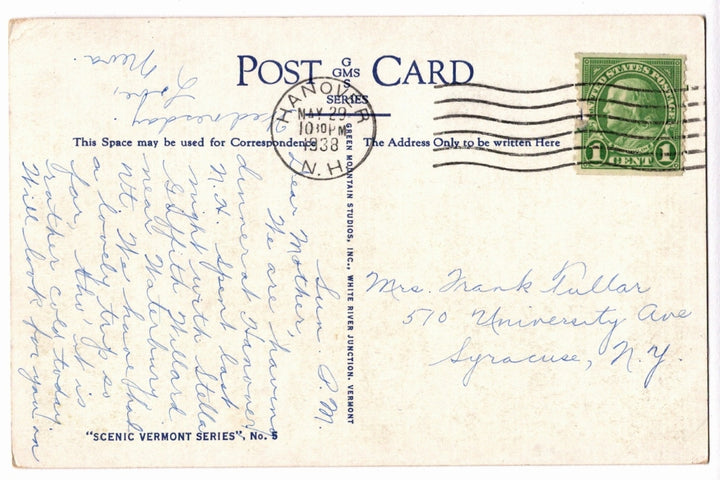 POST CARD
G
GMS
S
SERIES
This Space may be used for Correspondence
The Address Only to be written Here
HANOVER
MAY 29
10 30 PM
1938
N.H.
UNITED STATES POSTAGE
1 CENT 1
GREEN MOUNTAIN STUDIOS, INC., WHITE RIVER JUNCTION, VERMONT
Sun. P.M.
Dear Mother,
We are having
dinner at Hanover
N.H. Spent last
night with Stella
Griffith Willard
near Waterbury
Vt. We have had
a lovely trip so
far, tho it is
rather cold today.
Will look for you on
Wednesday
Love,
Neva
Mrs. Frank Fullar
510 University Ave
Syracuse, N.Y.
"SCENIC VERMONT SERIES", No. 5